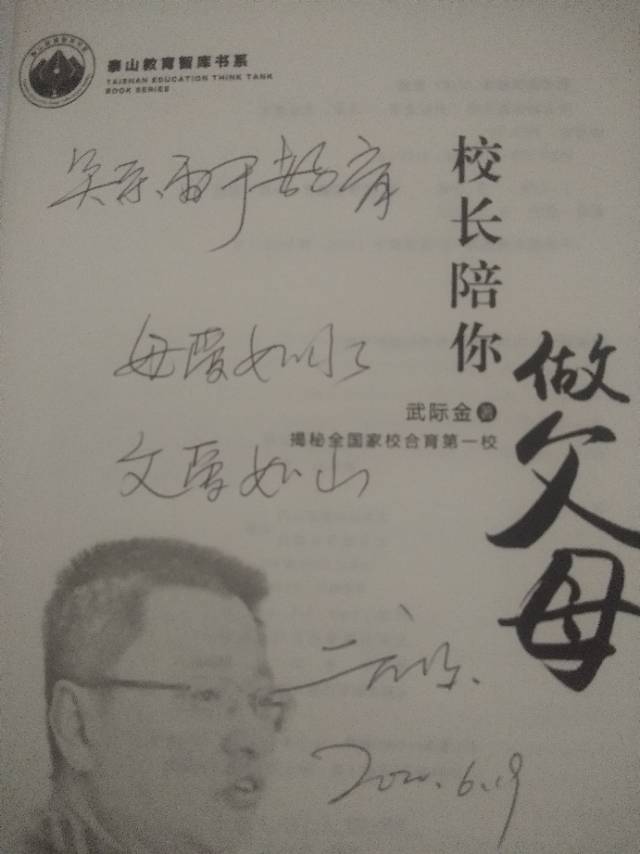 泰山教育智库书系
TAISHAN EDUCATION THINK TANK
BOOK SERIES
校长陪你
做父母
武际金 著
揭秘全国家校合育第一校
母爱如水
父爱如山
2020.6.19